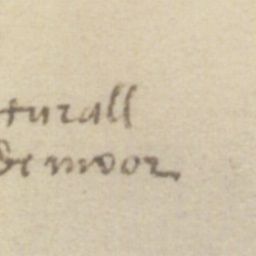 turall
de moor